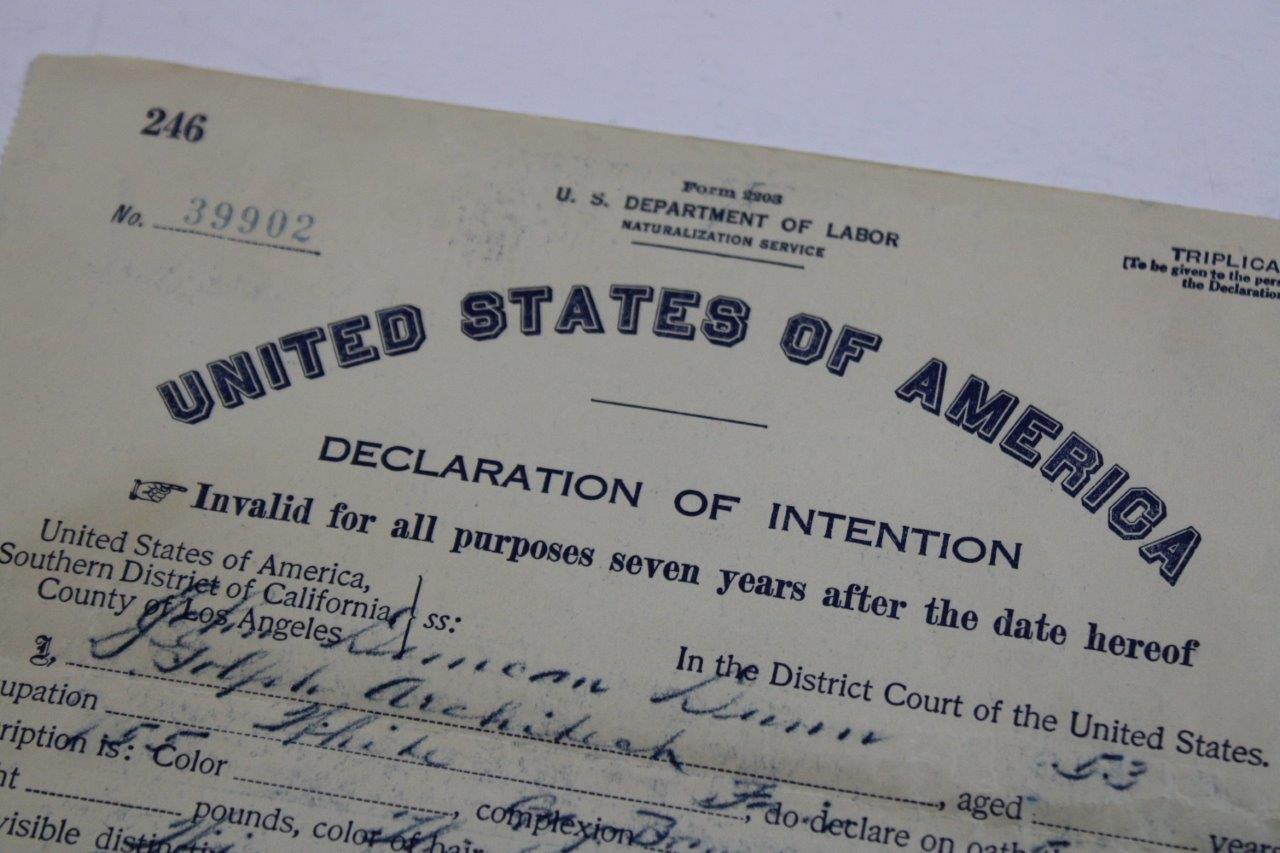 246
No. 39902
Form 2203
U. S. DEPARTMENT OF LABOR
NATURALIZATION SERVICE
TRIPLICA
[To be given to the pers
the Declaration
UNITED STATES OF AMERICA
DECLARATION OF INTENTION
Invalid for all purposes seven years after the date hereof
United States of America,
Southern District of California
County of Los Angeles
ss:
In the District Court of the United States.
I, John Duncan Dunn, aged 53 years
upation Golf Architect, do declare on oath
ription is: Color White, complexion
ht
155 pounds, color of hair
visible distincti